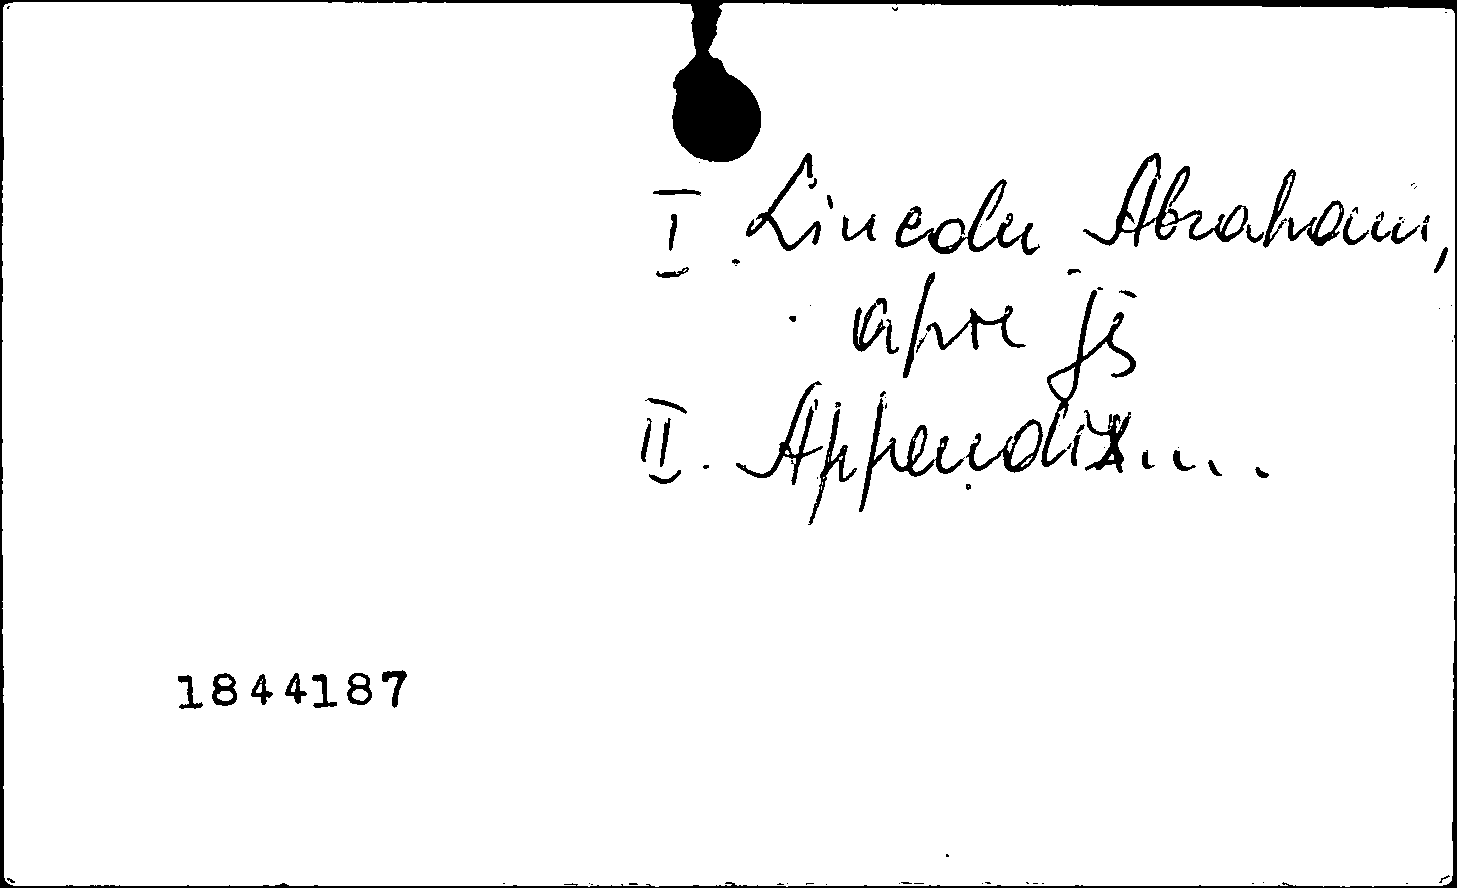 I. Lincoln Abraham,
apre jį
II. Appendix....
1844187